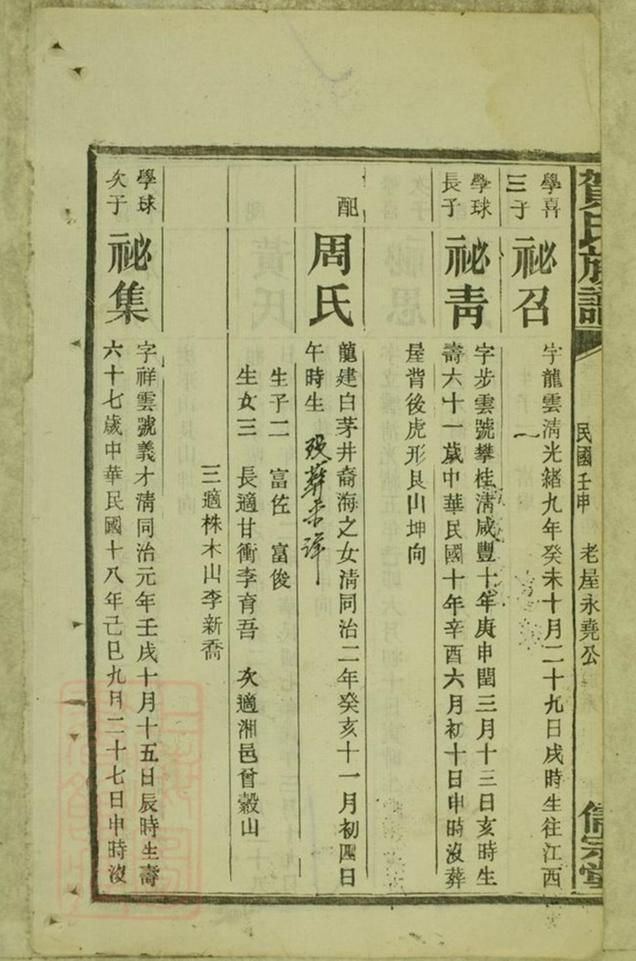 賀氏族譜
民國壬申
老屋永堯公
學喜
三子
祕召
字龍雲淸光緖九年癸未十月二十九日戌時生往江西
學球
長子
祕靑
字步雲號攀桂淸咸豐十年庚申閏三月十三日亥時生
壽六十一歲中華民國十年辛酉六月初十日申時沒葬
屋背後虎形艮山坤向
配
周氏
龍建白茅井裔海之女淸同治二年癸亥十一月初四日
午時生 歿葬未詳
生子二 富佐 富俊
生女三 長適甘衝李育吾 次適湘邑曾穀山
三適株木山李新喬
學球
次子
祕集
字祥雲號義才淸同治元年壬戌十月十五日辰時生壽
六十七歲中華民國十八年己巳九月二十七日申時沒